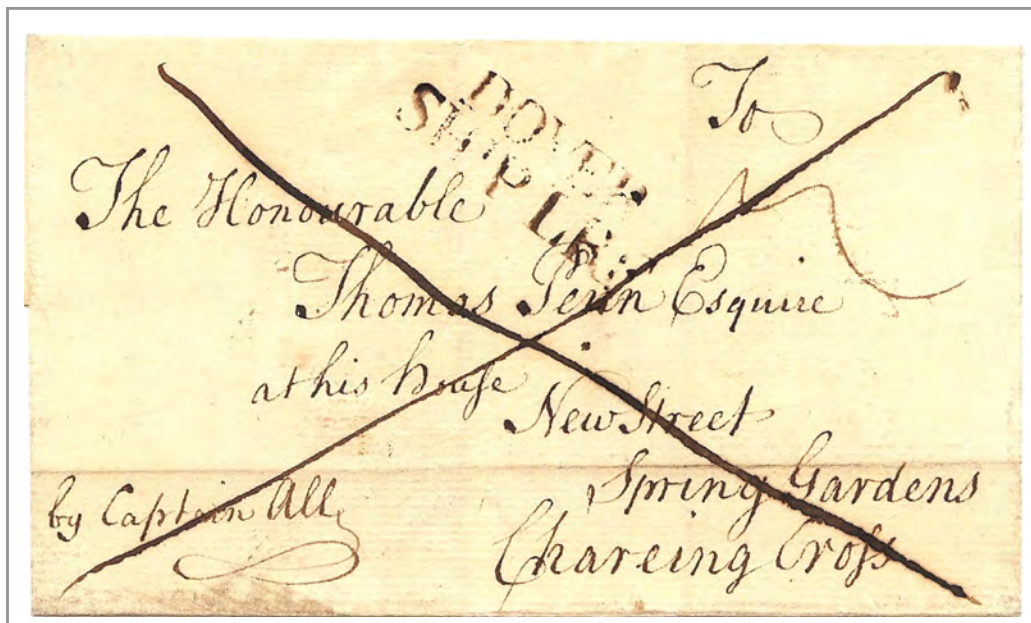 DOVER
SHIP LRE
To
The Honourable
Thomas Penn Esquire
at his House
New Street
Spring Gardens
Chareing Cross
by Captain All